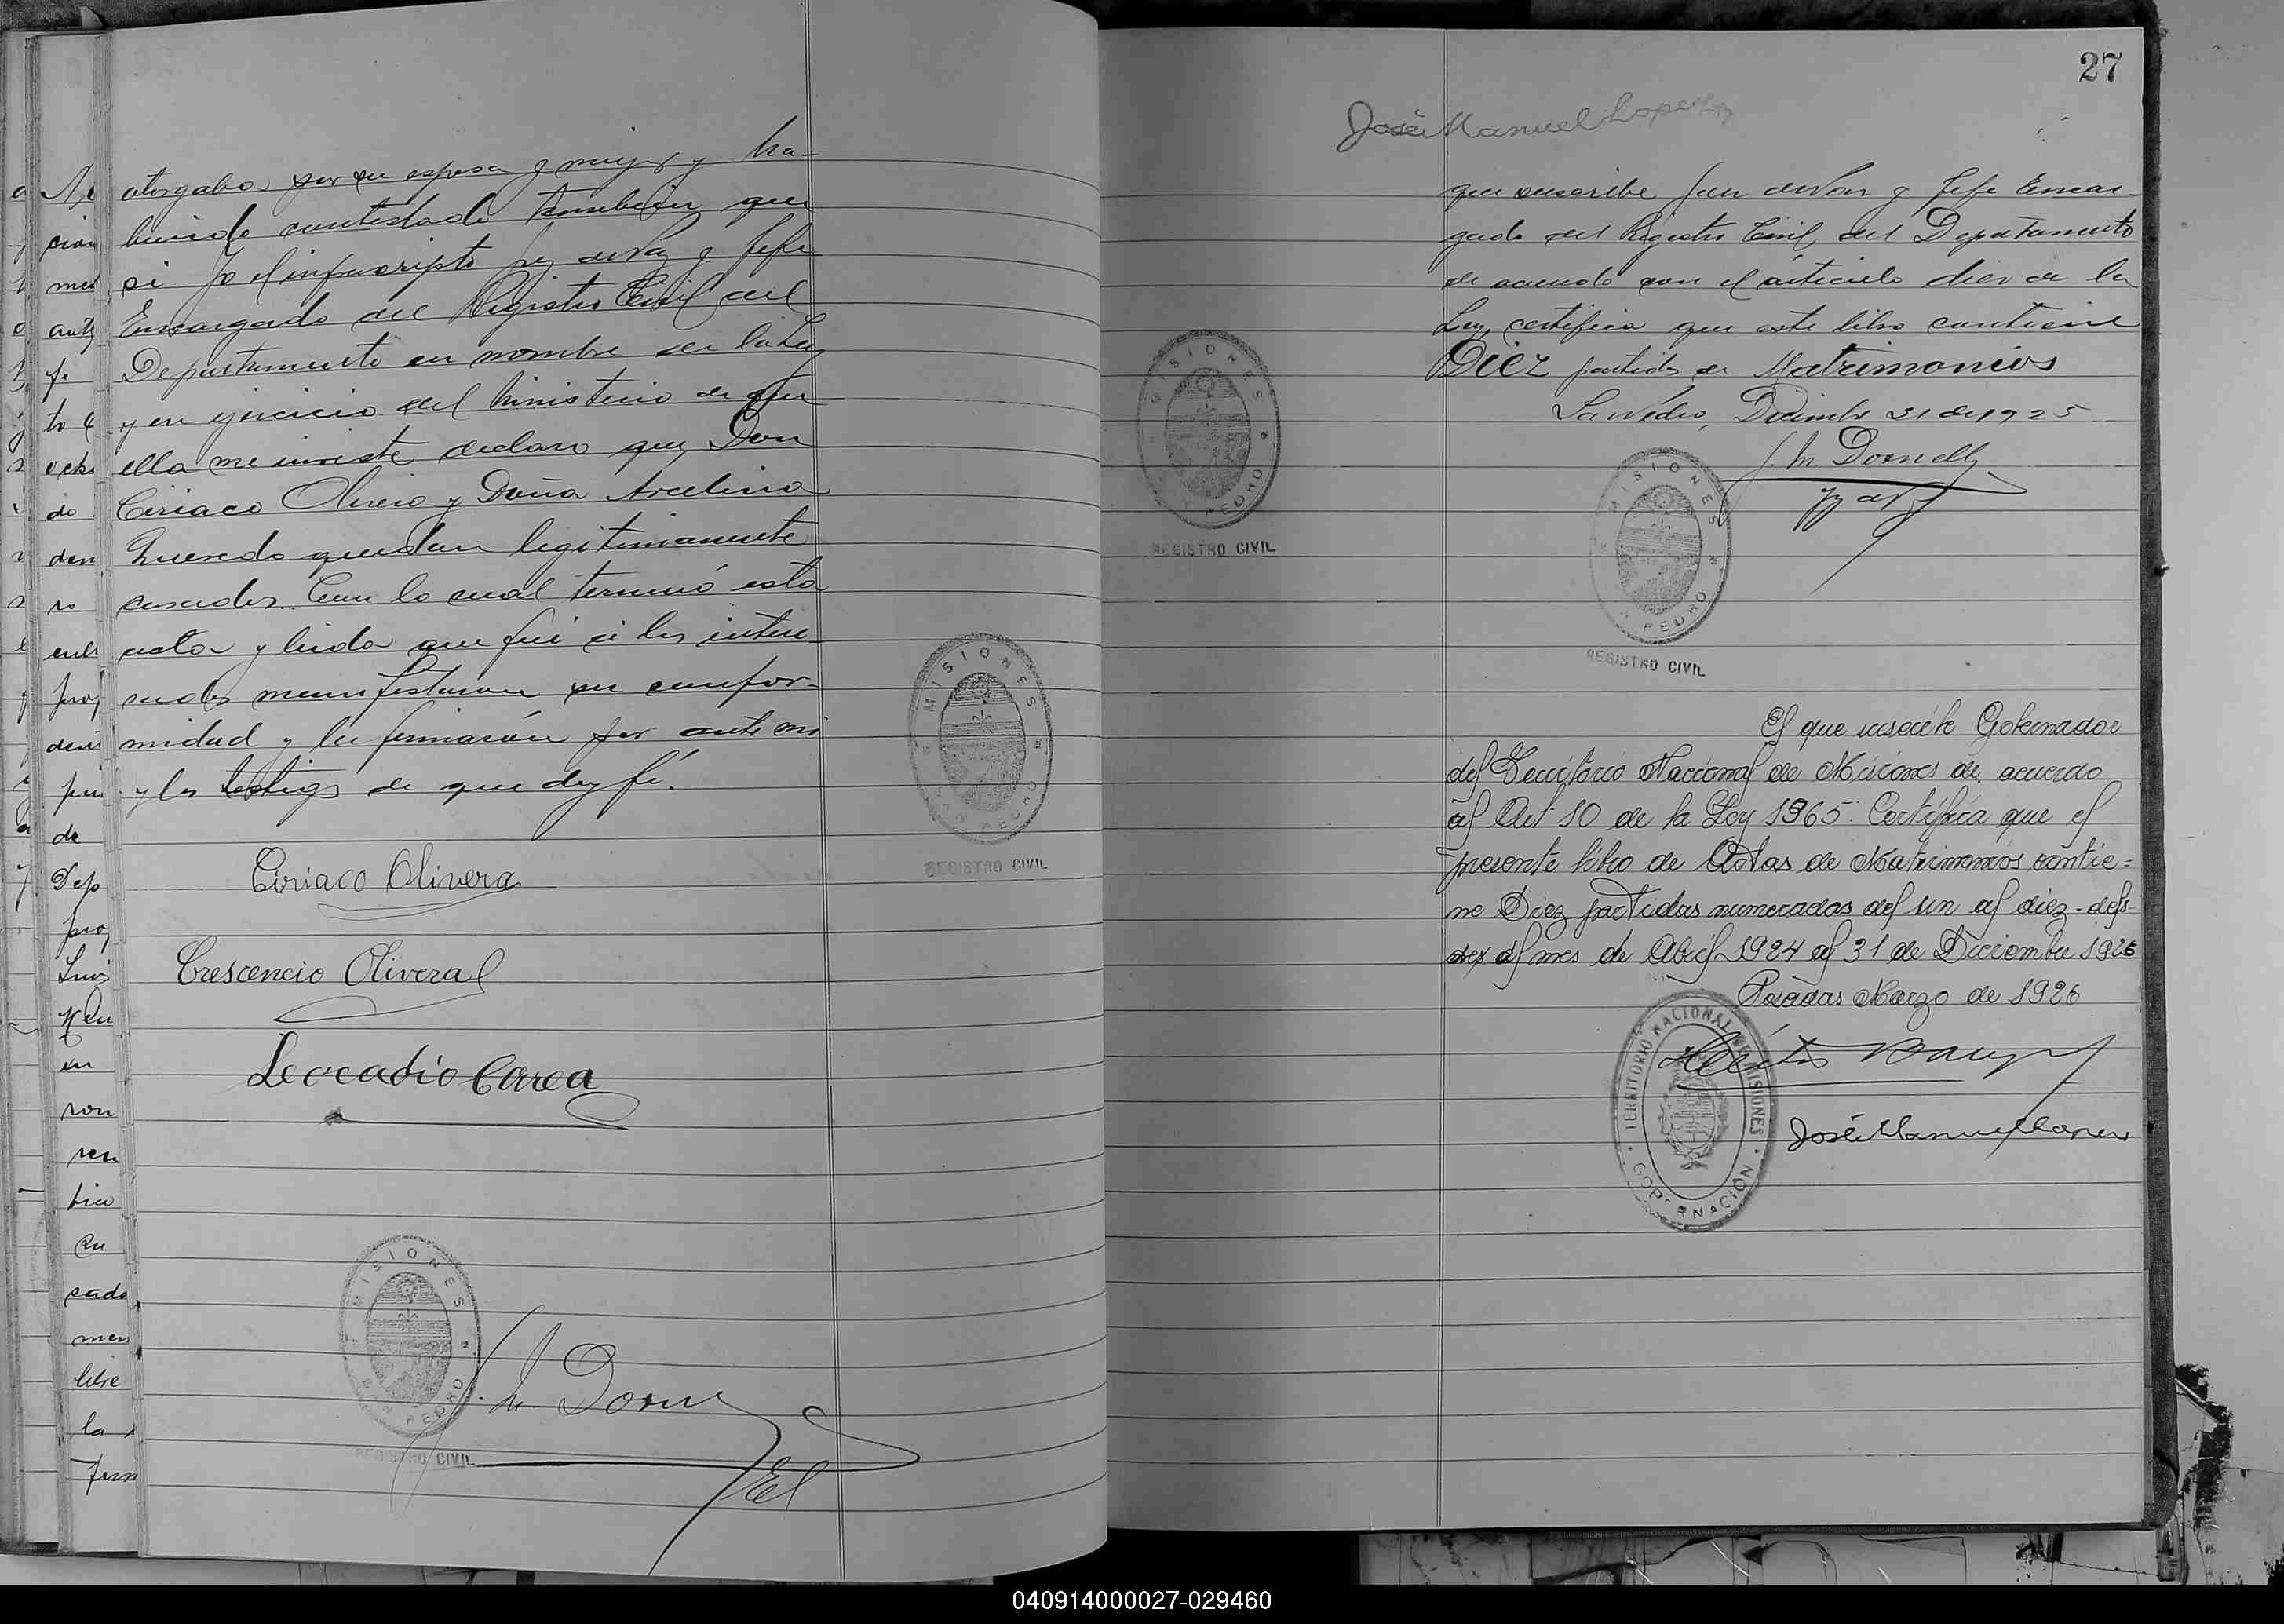 otorgaba por su esposa y mujer y ha-
biendo contestado tambien que
si. Yo el infrascripto Juez de Paz y Jefe
Encargado del Registro Civil del
Departamento en nombre de la Ley
y en ejercicio del Ministerio de que
ella me inviste declaro que Don
Ciriaco Olivera y Doña Arcelina
quedan legitimamente
casados. Con lo cual terminó esta
acta y leida que fué a los intere-
sados manifestaron su confor-
midad y la firmarón por ante mi
y los testigos de que doy fé.
Ciriaco Olivera
Crescencio Olivera
Leocadio Correa
MISIONES
SAN PEDRO
REGISTRO CIVIL
MISIONES
SAN PEDRO
REGISTRO CIVIL
27
José Manuel Lopez
que suscribe Juez de Paz y Jefe Encar-
gado del Registro Civil del Departamento
de acuerdo con el articulo diez de la
Ley, certifica que este libro contiene
Diez partidas de Matrimonios
San Pedro, Diciembre 31 de 1925
J. M. Donnelly
MISIONES
SAN PEDRO
REGISTRO CIVIL
MISIONES
SAN PEDRO
REGISTRO CIVIL
El que suscribe Gobernador
del Territorio Nacional de Misiones de acuerdo
al Art 10 de la Ley 1565: Certifica que el
presente libro de Actas de Matrimonios contie=
ne Diez partidas numeradas del un al diez - des-
el mes de Abril 1924 al 31 de Diciembre 1925
Posadas Marzo de 1926
TERRITORIO NACIONAL DE MISIONES
GOBERNACIÓN
José Manuel Lopez
040914000027-029460